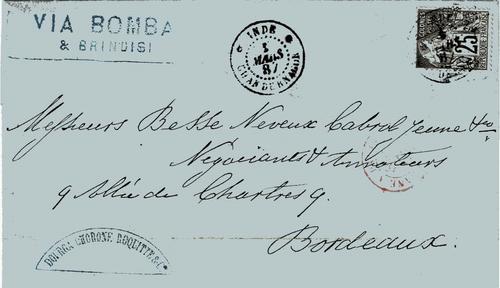 VIA BOMBA
& BRINDISI
INDE
MARS
87
CHANDERNAGOR
25
Messieurs Besse Neveux Cabrol Jeune & Co
Négociants & Armateurs
9 Allée de Chartres 9.
Bordeaux.
DOORGA CHORONE ROQUITTE & Cº